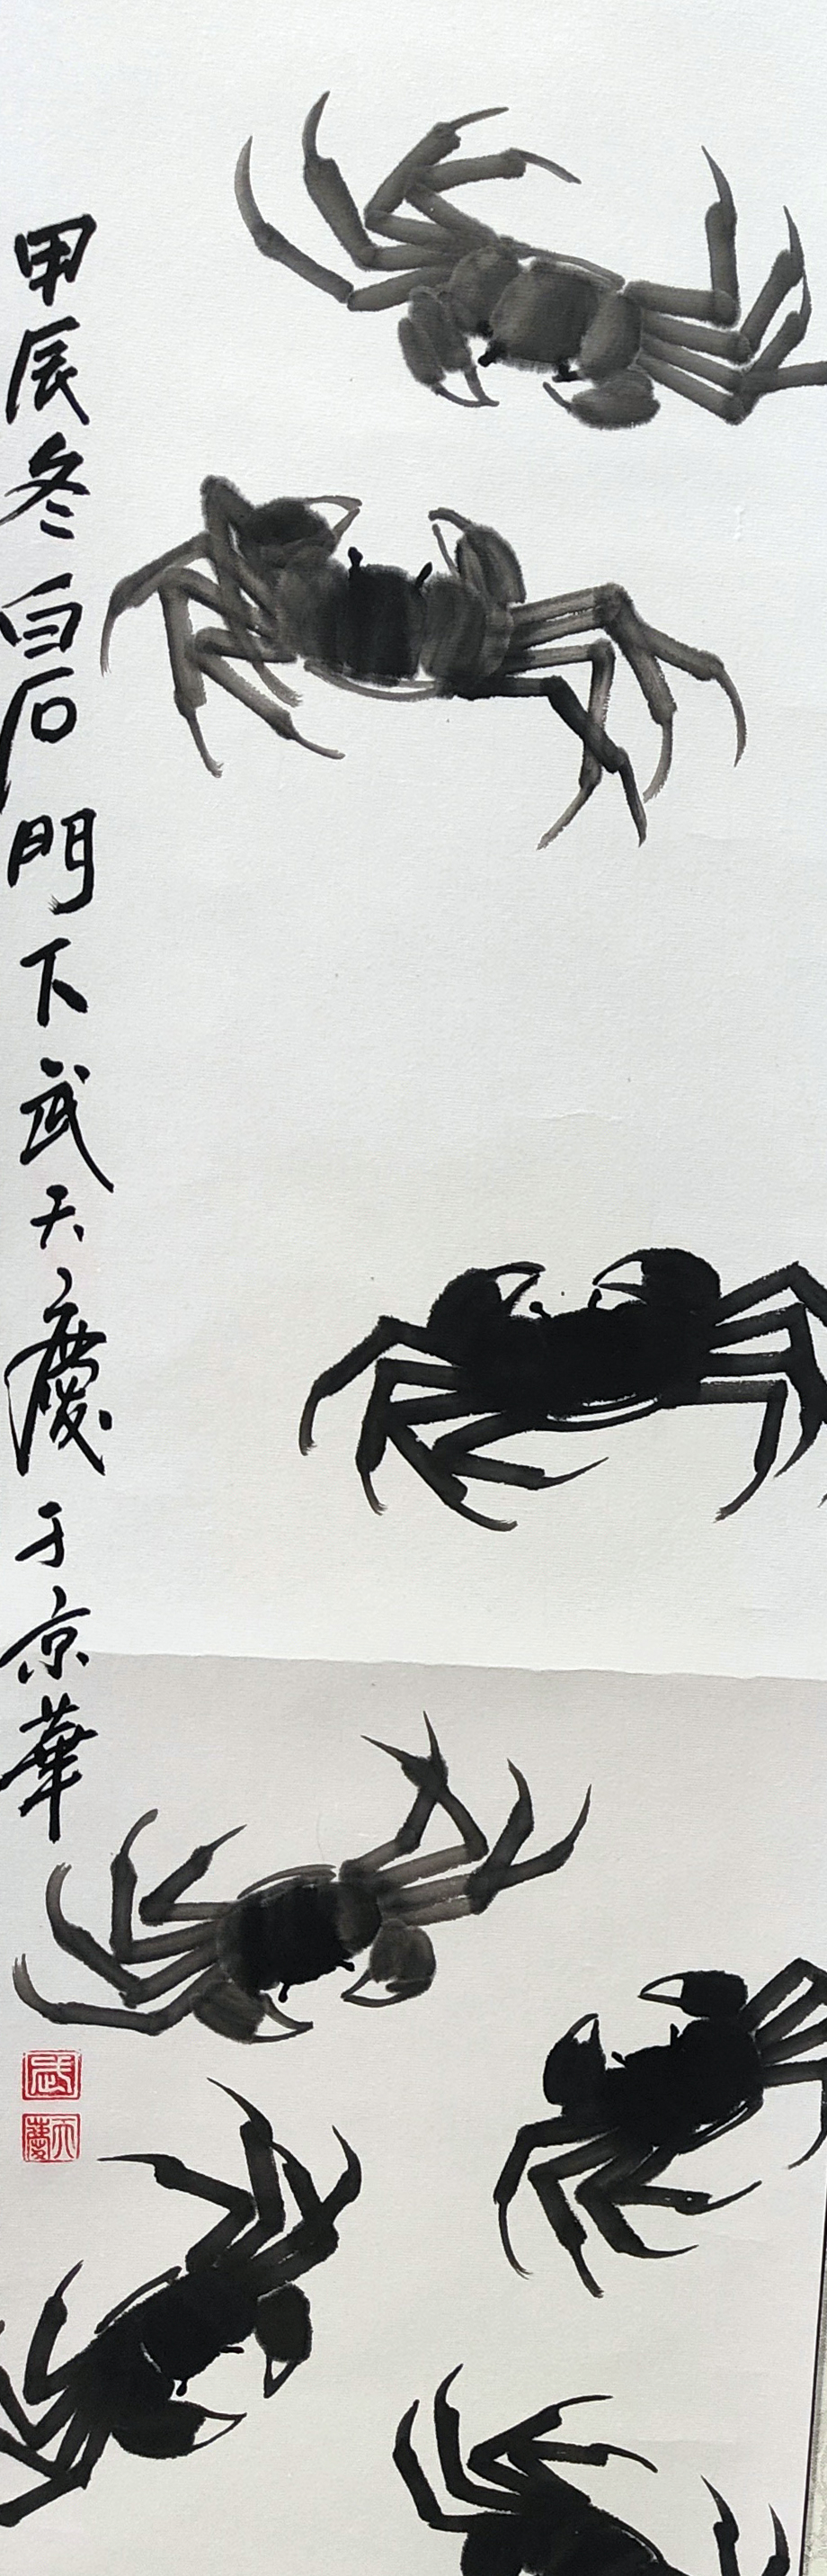 甲辰冬白石門下武天慶于京華
武
天慶